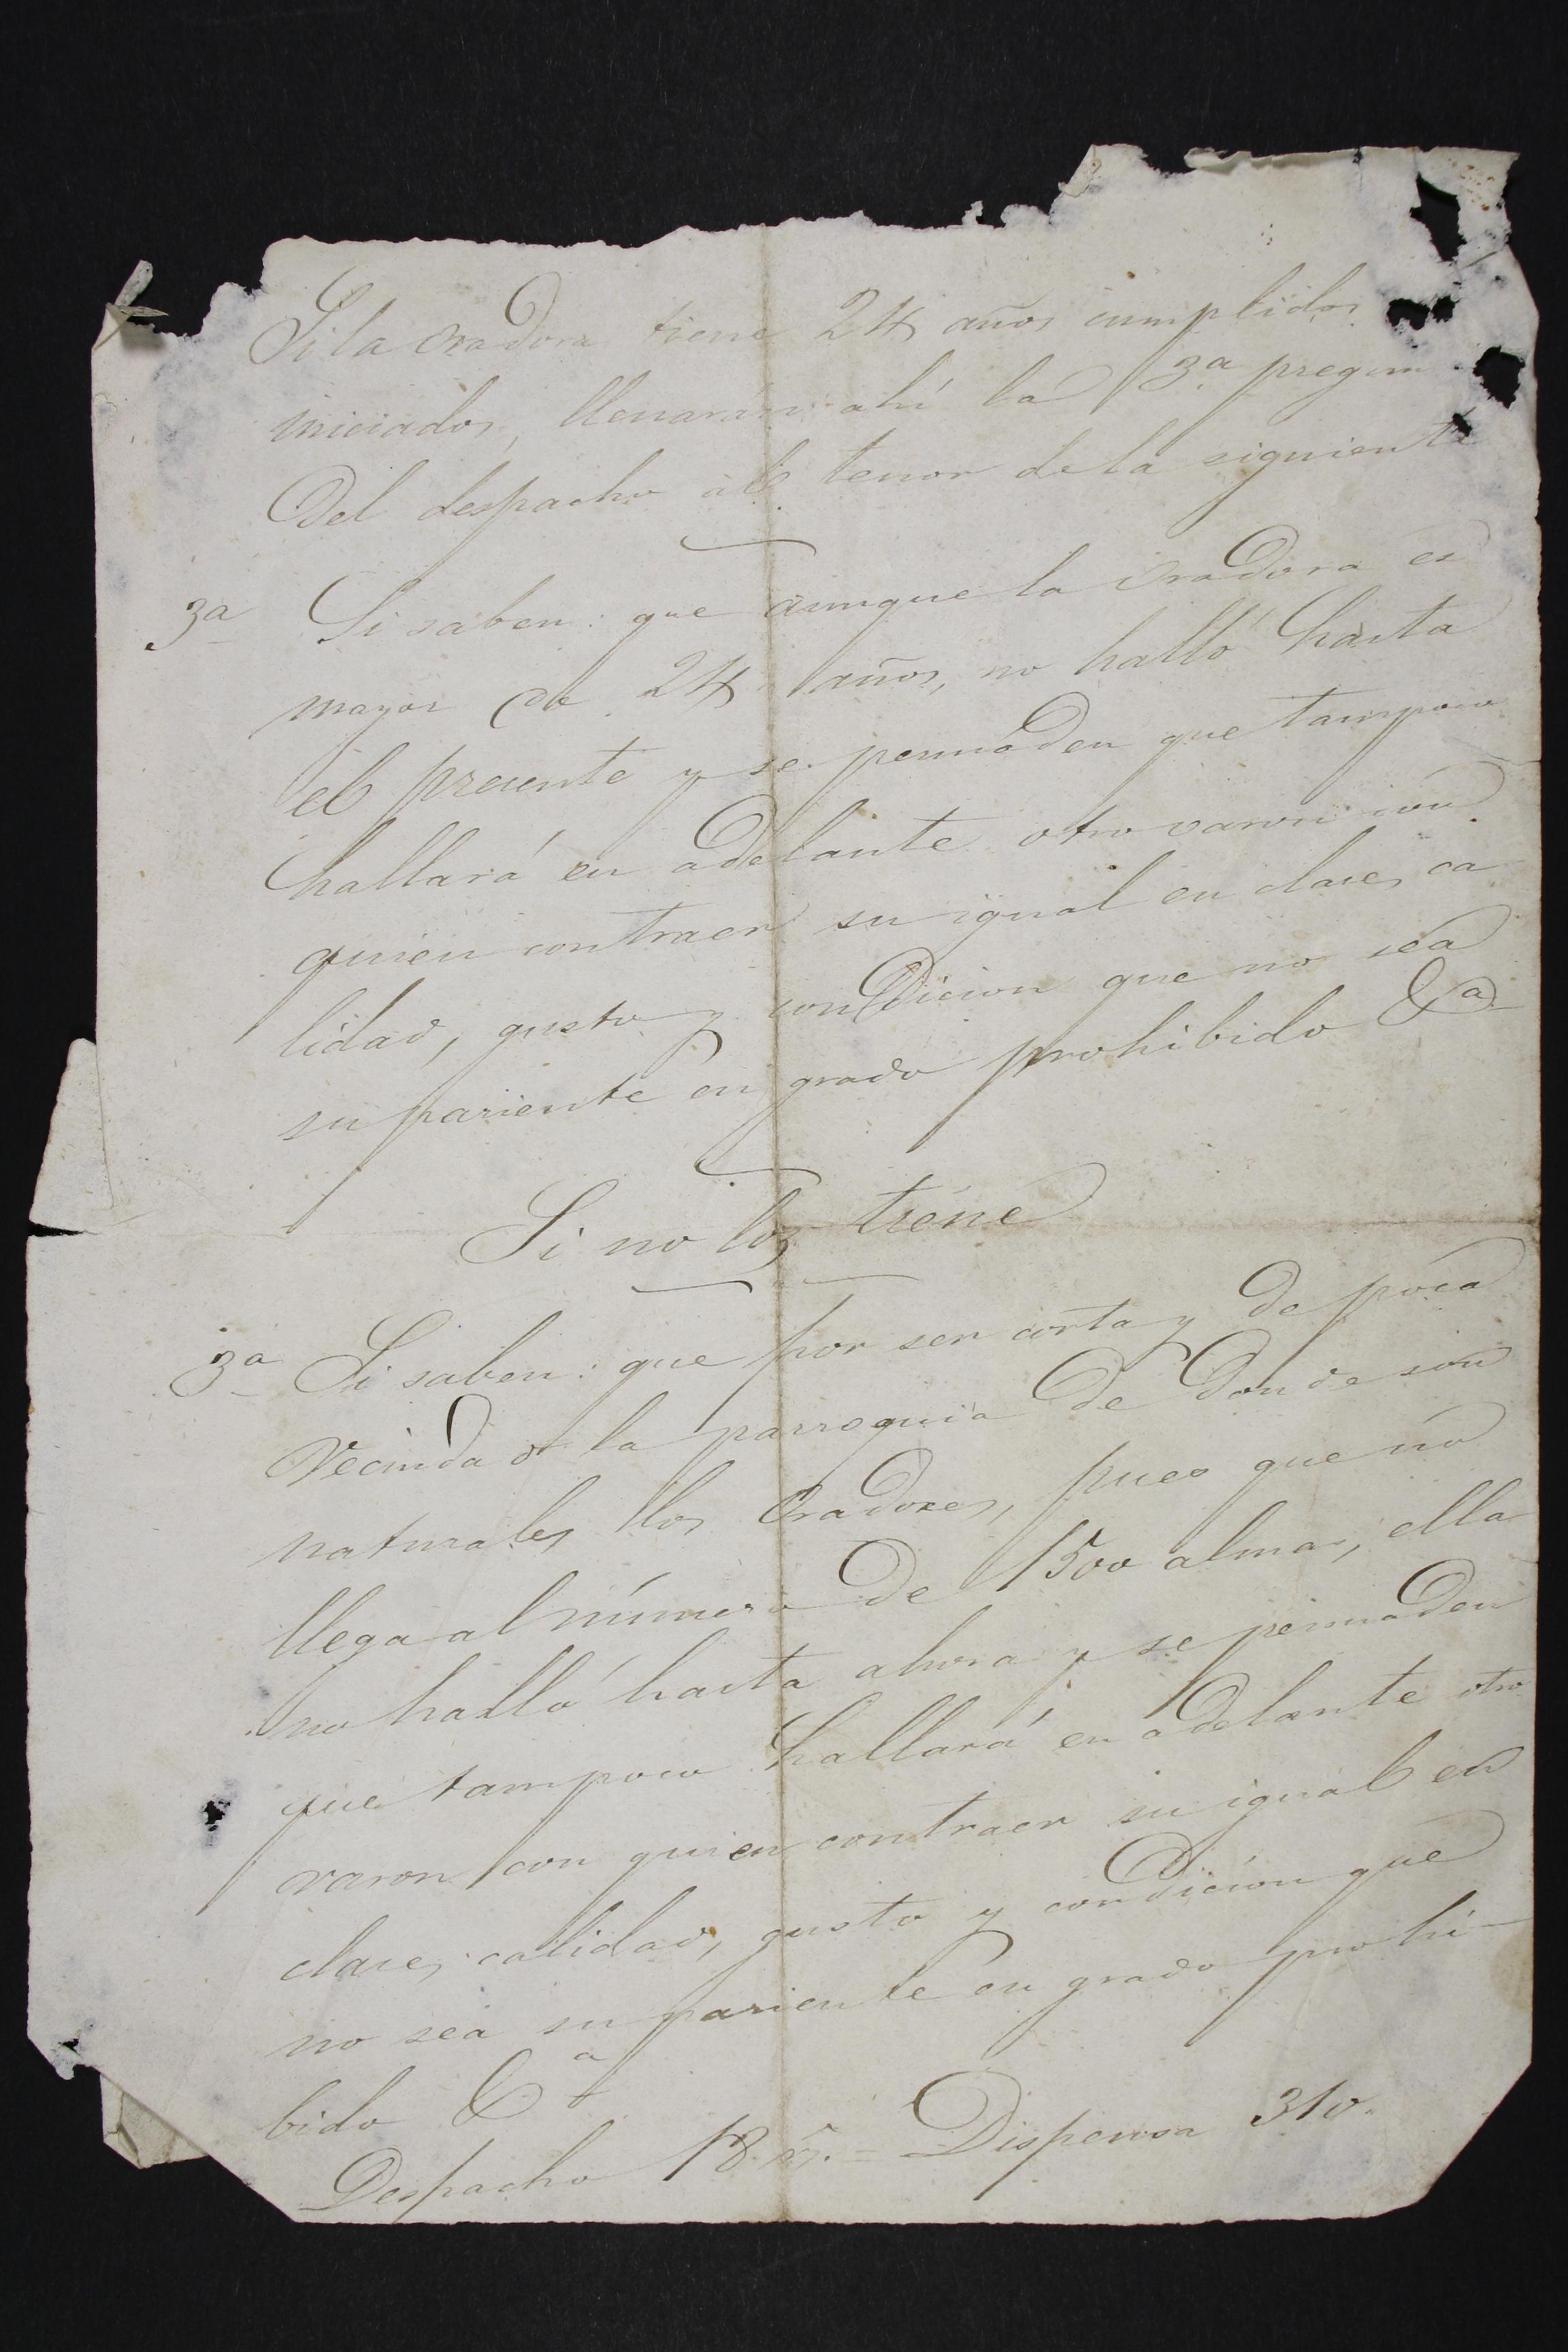 Si la Oradora tiene 24 años cumplidos
iniciados, llenarán ahí la 3.a pregun
Del despacho al tenor de la siguiente
3a Si saben: que aunque la Oradora es
mayor de 24 años, no halló hasta
el presente y se persuaden que tampoco
hallará en adelante otro varon con
quien contraer su igual en clase, ca
lidad, gusto y condicion que no sea
su pariente en grado prohibido &a
Si no los tiene
3a Si saben: que por ser corta y de poca
Vecindad la parroquia de donde son
naturales los Oradores, pues que no
llega al número de 1500 almas, ella
no halló hasta ahora y se persuaden
que tampoco hallará en adelante otro
varon con quien contraer su igual en
clase, calidad, gusto y condicion que
no sea su pariente en grado prohi-
bido &a
Despacho 18 = Dispensa 310.